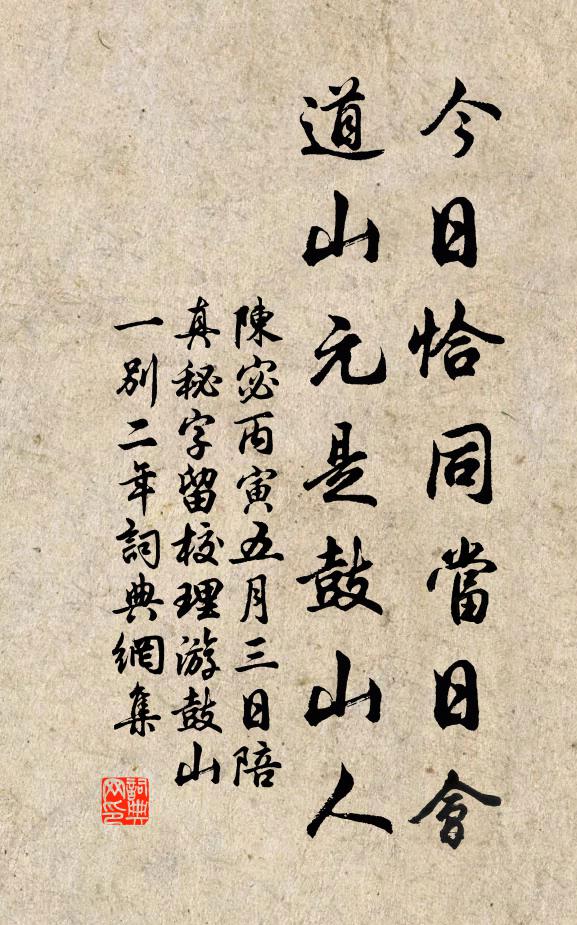 今日恰同當日會
道山元是鼓山人
陳宓丙寅五月三日陪
真秘字留校理游鼓山
一別二年詞典網集
詞典網印